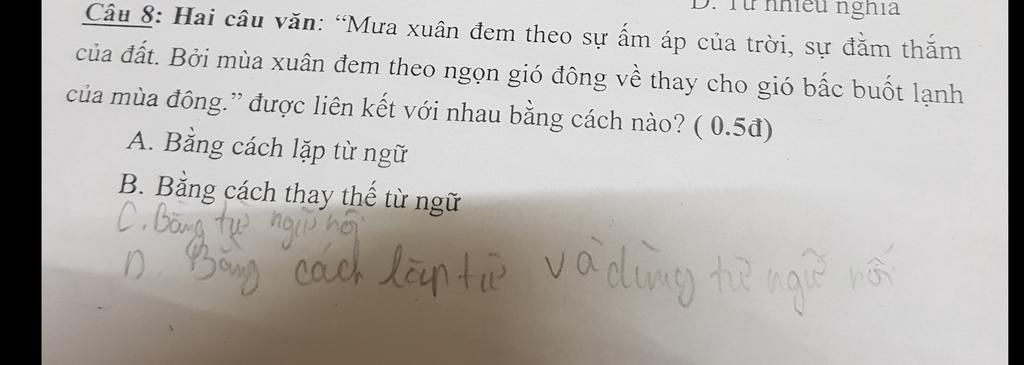 D. Từ nhiều nghĩa
Câu 8: Hai câu văn: “Mưa xuân đem theo sự ấm áp của trời, sự đằm thắm
của đất. Bởi mùa xuân đem theo ngọn gió đông về thay cho gió bấc buốt lạnh
của mùa đông.” được liên kết với nhau bằng cách nào? ( 0.5đ)
A. Bằng cách lặp từ ngữ
B. Bằng cách thay thế từ ngữ
C. Bằng từ ngữ nối
D Bằng cách lặp từ và dùng từ ngữ nối